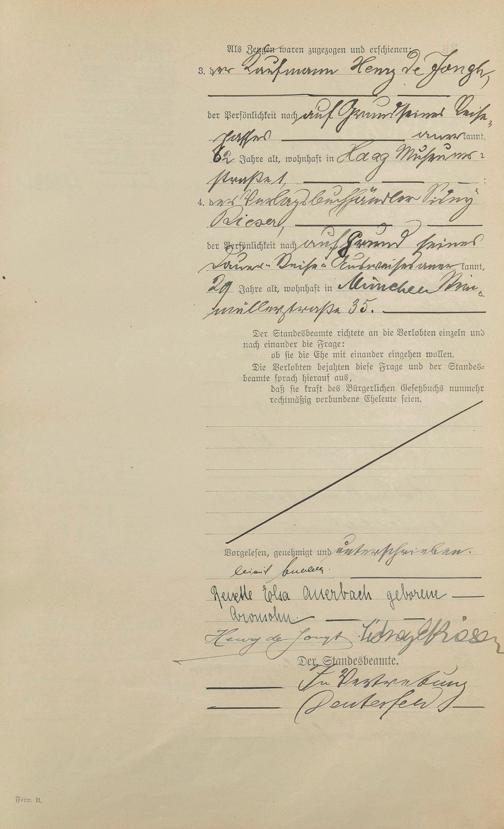 Als Zeugen waren zugezogen und erschienen:
3. der Kaufmann Henry de Jongh,
der Persönlichkeit nach auf Grund seines Reise-
passes anerkannt,
62 Jahre alt, wohnhaft in Haag Museums-
straße 1,
4. der Verlagsbuchhändler
der Persönlichkeit nach auf Grund seines
Dauer-Reise-Ausweises anerkannt,
29 Jahre alt, wohnhaft in München
müllerstraße 35.
Der Standesbeamte richtete an die Verlobten einzeln und
nach einander die Frage:
ob sie die Ehe mit einander eingehen wollen.
Die Verlobten bejahten diese Frage und der Standes-
beamte sprach hierauf aus,
daß sie kraft des Bürgerlichen Gesetzbuchs nunmehr
rechtmäßig verbundene Eheleute seien.
Vorgelesen, genehmigt und unterschrieben.
Elsa Auerbach geborene
Aronsohn.
Henry de Jongh
Der Standesbeamte.
In Vertretung
Form. B.